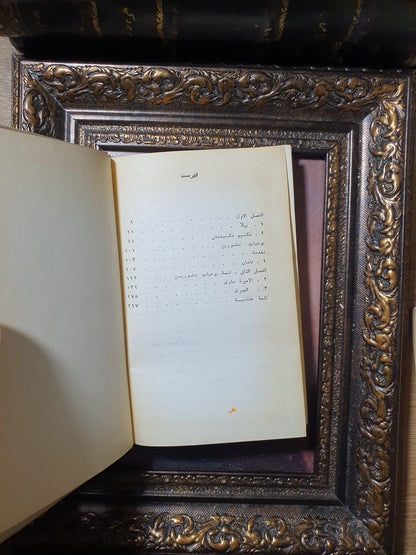 فهرست
الفصل الاول . . . . . . . . ٩
١ ـ بيلا . . . . . . . . ١١
٢ ـ مكسيم مكسيمتش . . . . . ٨١
يوميات بتشورين . . . . . . . ١٠١
مقدمة . . . . . . . . ١٠٣
١ ـ تامان . . . . . . . . ١٠٥
الفصل الثاني . تتمة يوميات بتشورين . . . ١٢٩
٢ ـ الاميرة ماري . . . . . . ١٣١
٣ ـ الجبري . . . . . . . ٢٧٨
كلمة ختامية . . . . . . . ٢٩٧